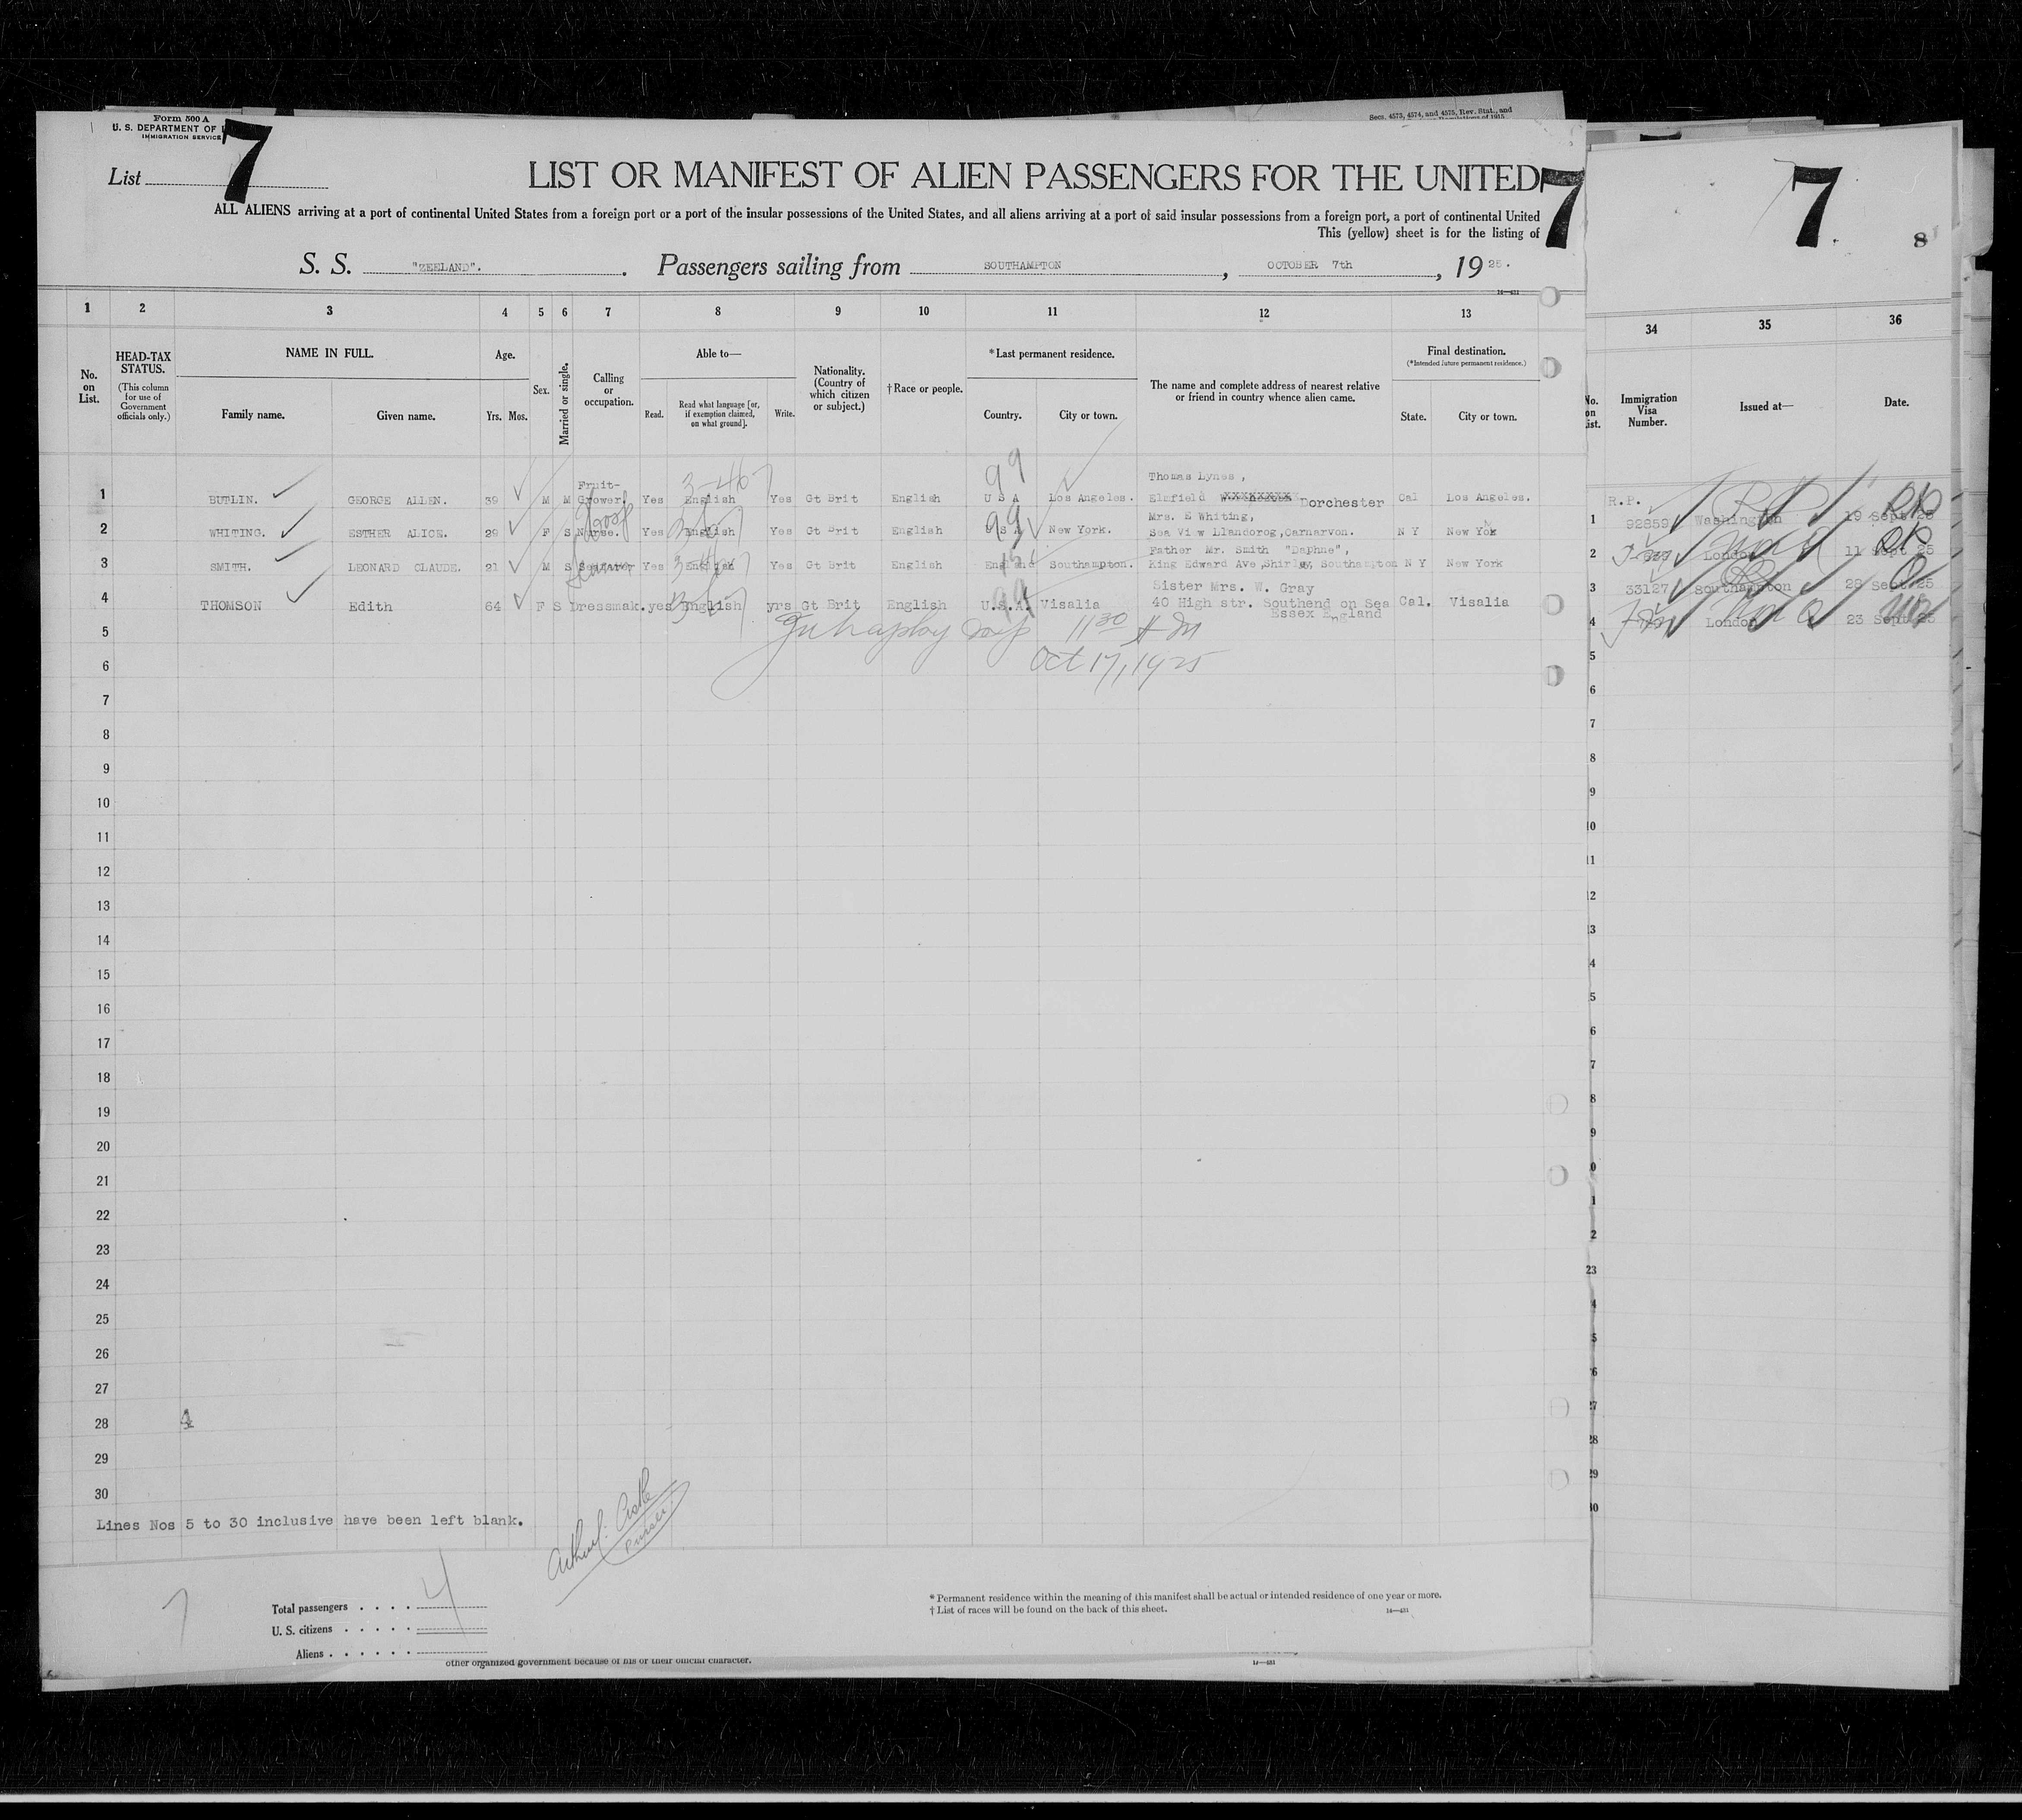 Form 500 A
U. S. DEPARTMENT OF
IMMIGRATION SERVICE
Secs. 4573, 4574, and 4575, Rev. Stat., and
List 7
LIST OR MANIFEST OF ALIEN PASSENGERS FOR THE UNITED
7
7
8
ALL ALIENS arriving at a port of continental United States from a foreign port or a port of the insular possessions of the United States, and all aliens arriving at a port of said insular possessions from a foreign port, a port of continental United
This (yellow) sheet is for the listing of
S. S. "ZEELAND". Passengers sailing from SOUTHAMPTON, OCTOBER 7th, 1925.
1 2 3 4 5 6 7 8 9 10 11 12 13 34 35 36
No. on List.
HEAD-TAX STATUS.
(This column for use of Government officials only.)
NAME IN FULL.
Family name. Given name.
Age.
Yrs. Mos.
Sex.
Married or single.
Calling or occupation.
Able to—
Read. Read what language [or, if exemption claimed, on what ground]. Write.
Nationality. (Country of which citizen or subject.)
†Race or people.
*Last permanent residence.
Country. City or town.
The name and complete address of nearest relative or friend in country whence alien came.
Final destination.
(*Intended future permanent residence.)
State. City or town.
No. on List.
Immigration Visa Number.
Issued at—
Date.
1 BUTLIN. GEORGE ALLEN. 39 M M Fruit-Grower. Yes English Yes Gt Brit English U S A Los Angeles. Thomas Lynes, Elmfield Dorchester Cal Los Angeles.
2 WHITING. ESTHER ALICE. 29 F S Nurse. Yes English Yes Gt Brit English U S A New York. Mrs. E Whiting, Sea Vi w Llandorog,Carnarvon. N Y New Yok
3 SMITH. LEONARD CLAUDE. 21 M S Yes English Yes Gt Brit English England Southampton. Father Mr. Smith "Daphne", King Edward Ave,Shirley, Southampton N Y New York
4 THOMSON Edith 64 F S Dressmak. yes English yrs Gt Brit English U.S.A. Visalia Sister Mrs. W. Gray 40 High str. Southend on Sea Essex England Cal. Visalia
R.P.
1 92859 Washington 19 Sept 25
2 London 11 Sept 25
3 33127 Southampton 28 Sept 25
4 London 23 Sept 25
11 30 A M
Oct 17, 1925
5
6
7
8
9
10
11
12
13
14
15
16
17
18
19
20
21
22
23
24
25
26
27
28
29
30
Lines Nos 5 to 30 inclusive have been left blank.
Purser
7
Total passengers . . . . 4
U. S. citizens . . . . .
Aliens . . . . . .
*Permanent residence within the meaning of this manifest shall be actual or intended residence of one year or more.
†List of races will be found on the back of this sheet.
14—431
other organized government because of his or their official character.